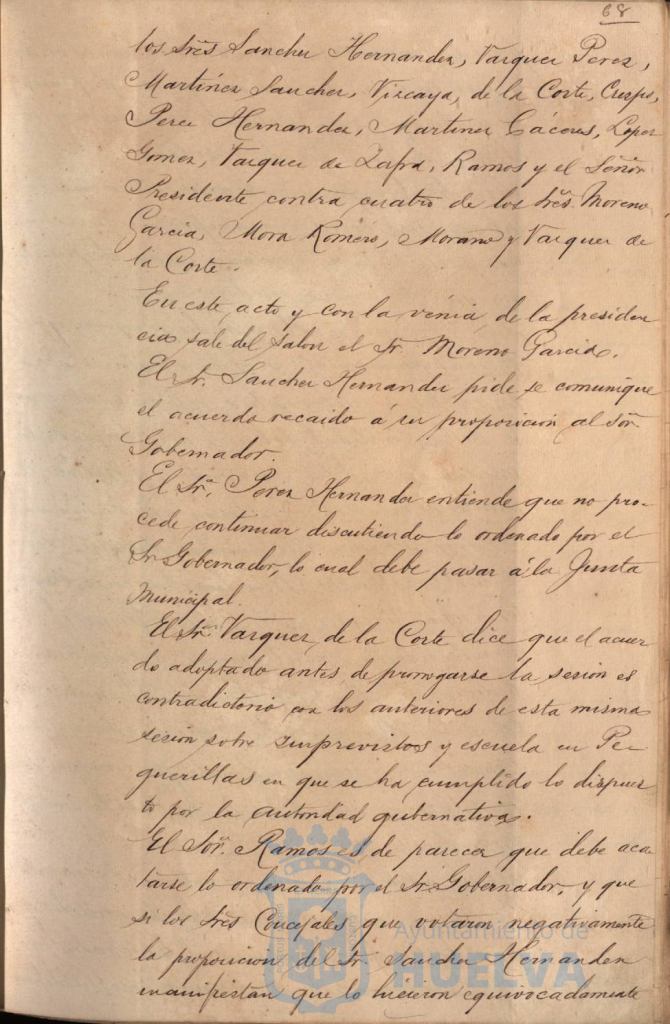 68
los Srēs Sancher Hernandez, Vazquez Perez,
Martinez Sancher, Vizcaya, de la Corte, Crespo,
Perez Hernandez, Martinez Cáceres, Lopez
Gomez, Vazquez de Zafra, Ramos y el Señor
Presidente contra cuatro de los Srēs Moreno
Garcia, Mora Romero, Morano y Vazquez de
la Corte.
En este acto y con la vénia de la presiden
cia sale del salon el Sr. Moreno Garcia.
El Sr. Sancher Hernandez pide se comunique
el acuerdo recaido á su proposicion al Sōr.
Gobernador.
El Sr. Perez Hernandez entiende que no pro-
cede continuar discutiendo lo ordenado por el
Sr Gobernador, lo cual debe pasar á la Junta
Municipal.
El Sr. Vazquez de la Corte dice que el acuer
do adoptado antes de prorrogarse la sesion es
contradictorio con los anteriores de esta misma
sesion sobre imprevistos y escuela en Pe-
guerillas en que se ha cumplido lo dispues
to por la autoridad gubernativa.
El Sor. Ramos es de parecer que debe aca-
tarse lo ordenado por el Sr. Gobernador, y que
si los Srēs Concejales que votaron negativamente
la proposicion del Sr. Sancher Hernandez
manifiestan que lo hicieron equivocadamente
Ayuntamiento de
HUELVA